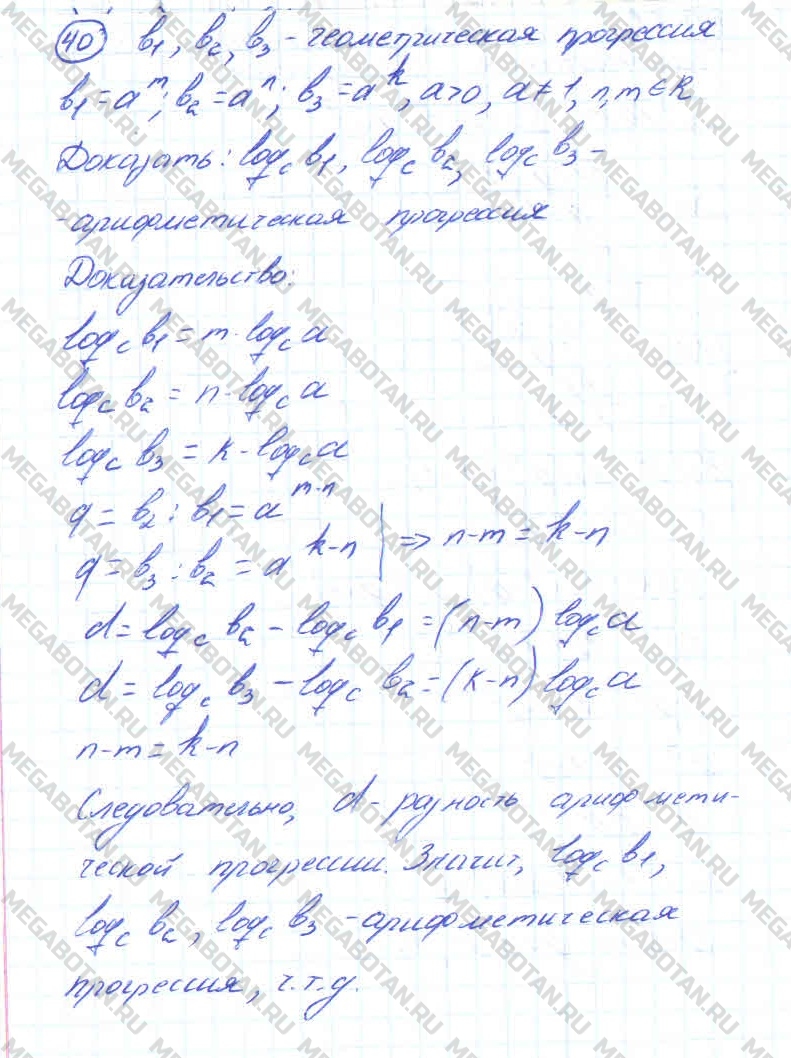 40) b₁, b₂, b₃ - геометрическая прогрессия
b₁ = aᵐ; b₂ = aⁿ; b₃ = aᵏ, a>0, a≠1, n, m ∈ R
Доказать: log_c b₁, log_c b₂, log_c b₃ -
- арифметическая прогрессия
Доказательство:
log_c b₁ = m · log_c a
log_c b₂ = n · log_c a
log_c b₃ = k · log_c a
q = b₂ : b₁ = a^(m-n)
q = b₃ : b₂ = a^(k-n) | ⇒ n-m = k-n
d = log_c b₂ - log_c b₁ = (n-m) log_c a
d = log_c b₃ - log_c b₂ = (k-n) log_c a
n-m = k-n
Следовательно, d - разность арифмети-
ческой прогрессии. Значит, log_c b₁,
log_c b₂, log_c b₃ - арифметическая
прогрессия, ч.т.д.
MEGABOTAN.RU